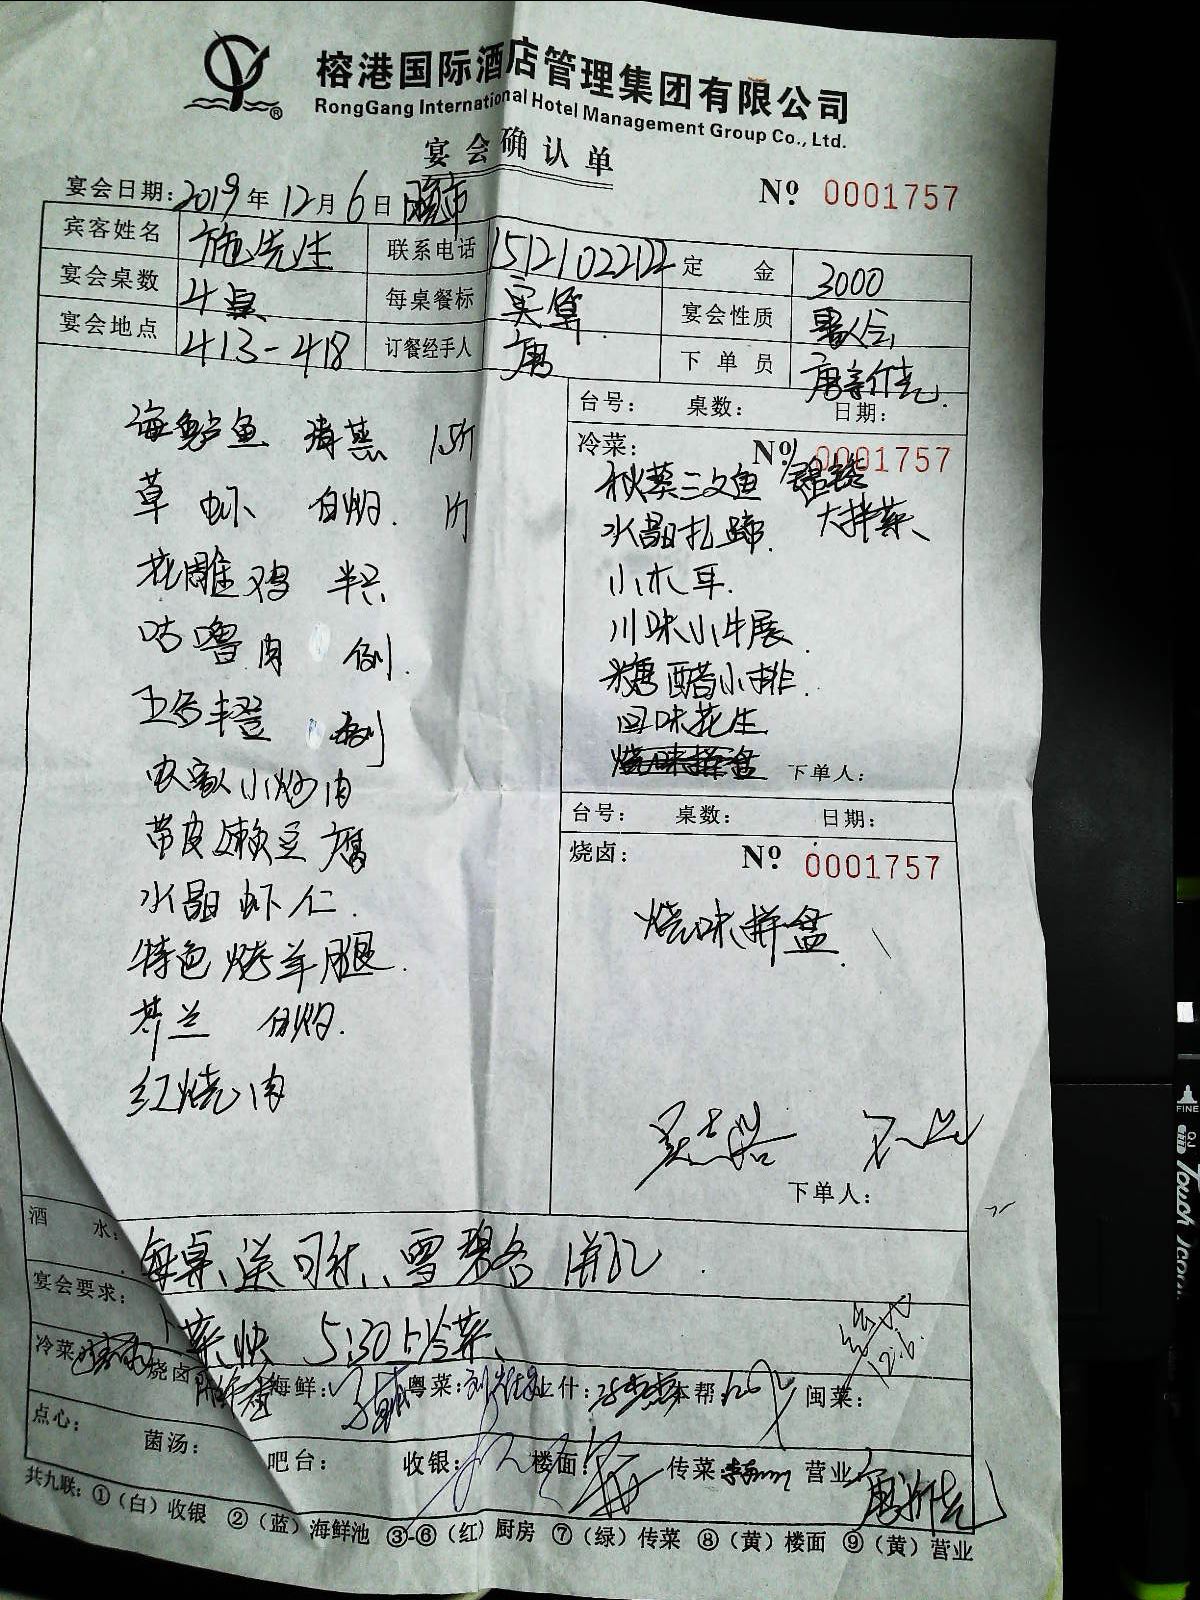 榕港国际酒店管理集团有限公司
RongGang International Hotel Management Group Co., Ltd.
宴会确认单
宴会日期：2019年12月6日 晚市
Nº 0001757
宾客姓名 施先生 联系电话 15121022122 定金 3000
宴会桌数 4桌 每桌餐标 实算 宴会性质
宴会地点 413-418 订餐经手人 唐 下单员
海鲈鱼 清蒸 1.5斤
草虾 白灼. 1斤
花雕鸡 半只
咕噜肉 例.
例
农家小炒肉
带皮嫩豆腐
水晶虾仁.
特色烤羊腿.
芥兰 白灼.
红烧肉
台号： 桌数： 日期：
冷菜： Nº 0001757
秋葵三文鱼
水晶扎蹄. 大拌菜
小木耳.
川味小牛展.
糖醋小排.
回味花生.
烧味拼盘 下单人：
台号： 桌数： 日期：
烧卤： Nº 0001757
烧味拼盘.
下单人：
酒水： 每桌送可乐、雪碧各1瓶.
宴会要求： 上菜快 5:30上冷菜
12.6.
冷菜 烧卤 海鲜： 粤菜： 上什： 本帮 闽菜：
点心： 菌汤： 吧台： 收银： 楼面： 传菜 营业
共九联：①（白）收银 ②（蓝）海鲜池 ③-⑥（红）厨房 ⑦（绿）传菜 ⑧（黄）楼面 ⑨（黄）营业
FINE